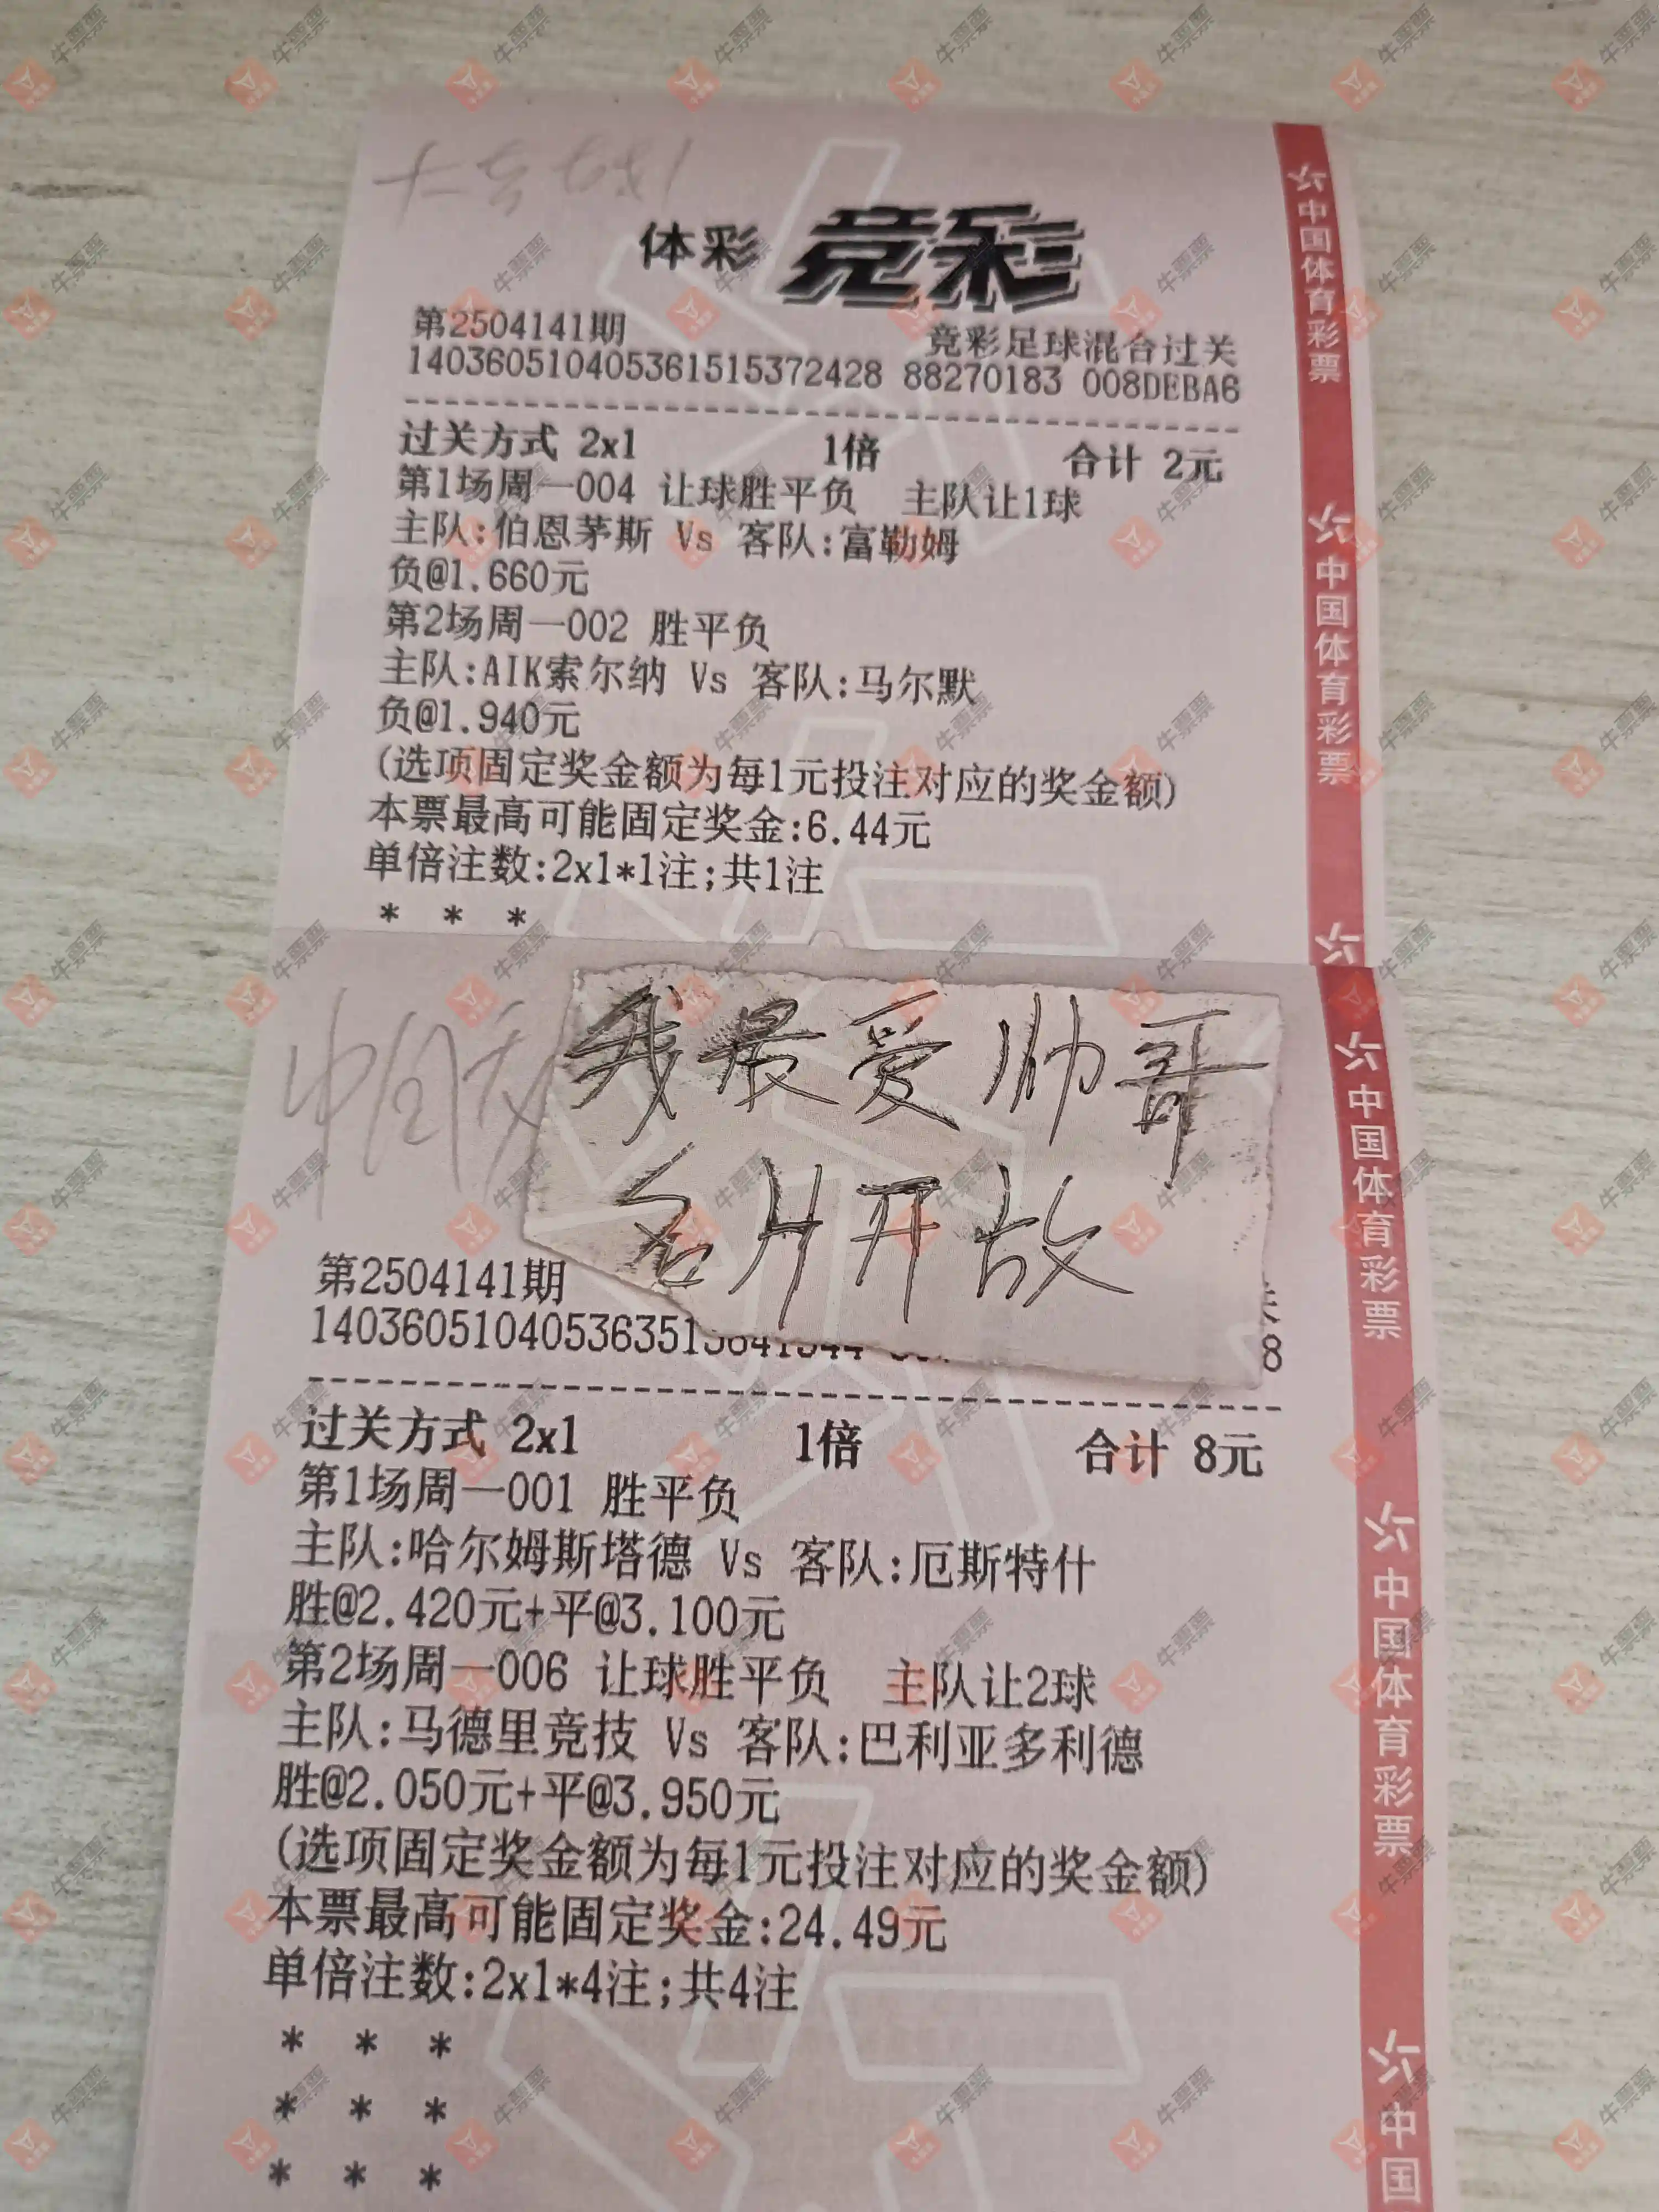 体彩 竞彩
第2504141期 竞彩足球混合过关
140360510405361515372428 88270183 008DEBA6
过关方式 2x1 1倍 合计 2元
第1场周一004 让球胜平负 主队让1球
主队:伯恩茅斯 Vs 客队:富勒姆
负@1.660元
第2场周一002 胜平负
主队:AIK索尔纳 Vs 客队:马尔默
负@1.940元
(选项固定奖金额为每1元投注对应的奖金额)
本票最高可能固定奖金:6.44元
单倍注数:2x1*1注;共1注
* * *
我最爱帅哥
名片开放
第2504141期
过关方式 2x1 1倍 合计 8元
第1场周一001 胜平负
主队:哈尔姆斯塔德 Vs 客队:厄斯特什
胜@2.420元+平@3.100元
第2场周一006 让球胜平负 主队让2球
主队:马德里竞技 Vs 客队:巴利亚多利德
胜@2.050元+平@3.950元
(选项固定奖金额为每1元投注对应的奖金额)
本票最高可能固定奖金:24.49元
单倍注数:2x1*4注;共4注
* * *
* * *
* * *
中国体育彩票
中国体育彩票
中国体育彩票
中国体育彩票
中国
牛票票